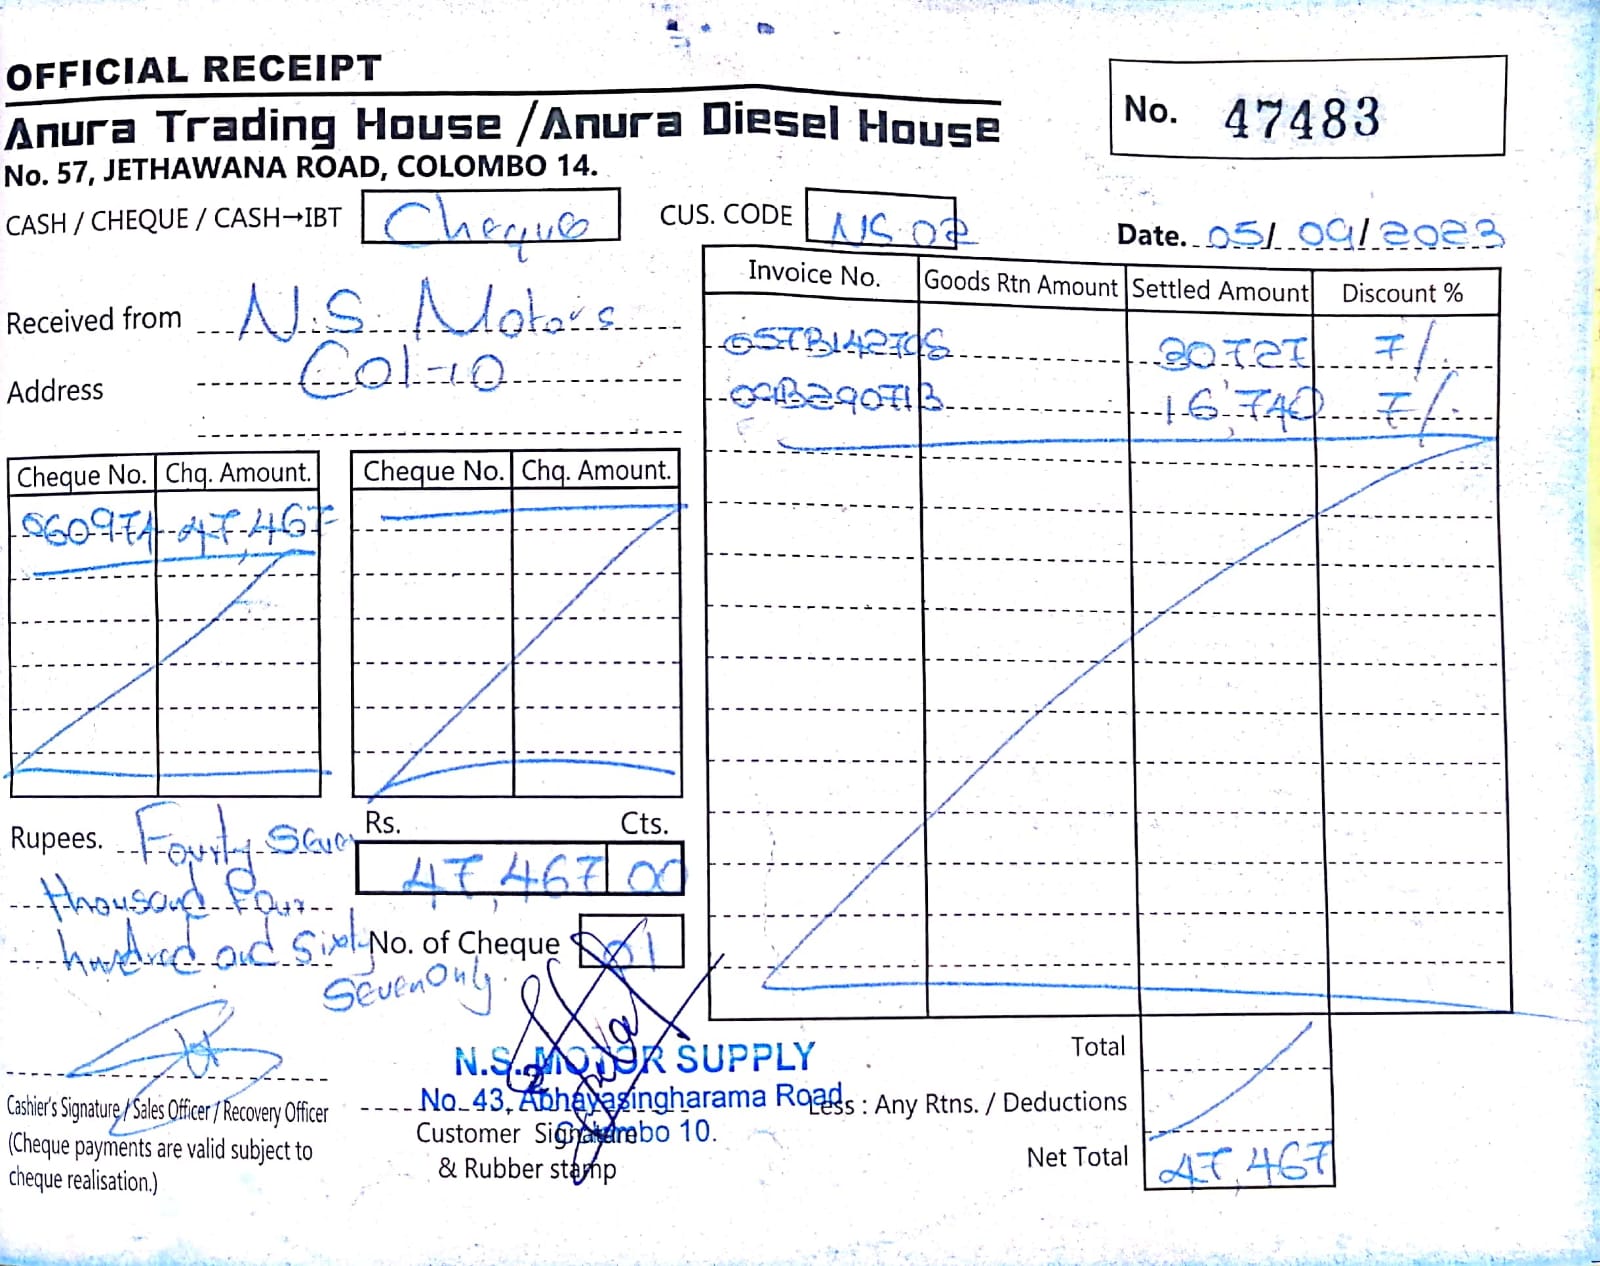 OFFICIAL RECEIPT
Anura Trading House / Anura Diesel House
No. 57, JETHAWANA ROAD, COLOMBO 14.
No. 47483
CASH / CHEQUE / CASH→IBT Cheque
CUS. CODE NS 02
Date. 05/ 09/ 2023
Received from N.S. Motors
Address Col-10
Invoice No. Goods Rtn Amount Settled Amount Discount %
30727 7/.
16,740 7/.
Cheque No. Chq. Amount. Cheque No. Chq. Amount.
060974 47,467
Rs. Cts.
47,467 00
Rupees. Fourty Seven
thousand Four
hundred and Sixty
Seven Only.
No. of Cheque 01
Cashier's Signature / Sales Officer / Recovery Officer
(Cheque payments are valid subject to
cheque realisation.)
N.S. MOTOR SUPPLY
No. 43, Abhayasingharama Road,
Colombo 10.
Customer Signature
& Rubber stamp
Total
Less : Any Rtns. / Deductions
Net Total 47,467